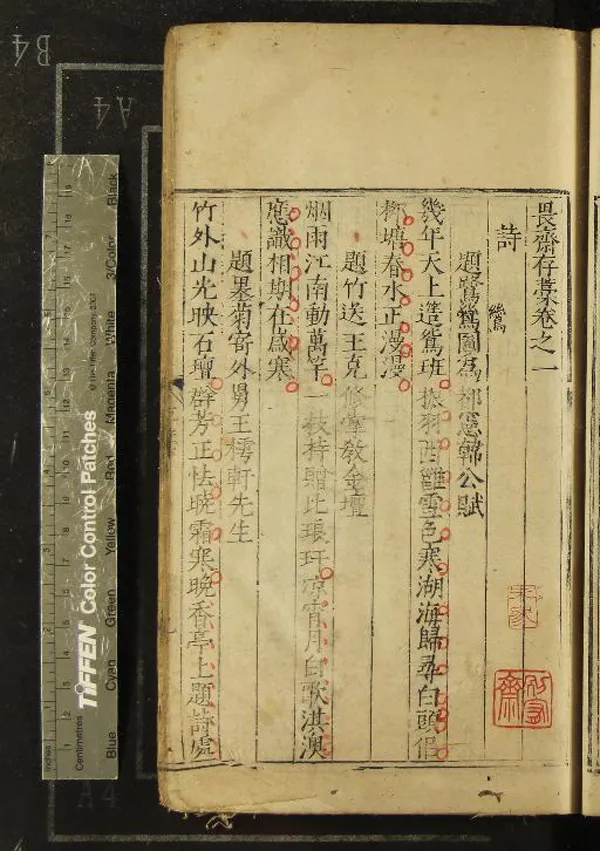 畏齋存藁卷之一
詩
題鷺鴛圖為都憲韓公賦
鷥
幾年天上造鴛班振羽西雝雪色寒湖海歸尋白頭侶
柳塘春水正漫漫
題竹送王克脩掌教金壇
烟雨江南動萬竿一枝持贈比琅玕凉宵月白歌淇澳
應識相與在歲寒
題墨菊寄外舅王樗軒先生
竹外山光映石壇群芳正怯曉霜寒晚香亭上題詩處
B4
A4
A4
TIFFEN Color Control Patches
© The Tiffen Company, 2007
Blue Cyan Green Yellow Red Magenta White 3/Color Black
Inches
Centimetres